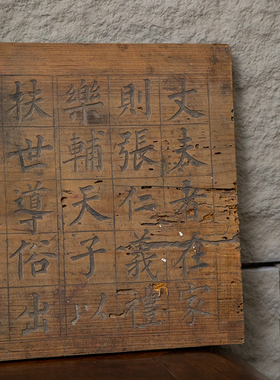 丈夫在家
則張仁義禮
樂輔天子以
扶世導俗出